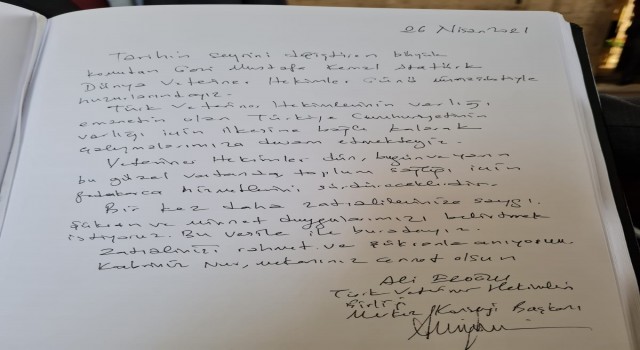 26 Nisan 2021
Tarihin seyrini değiştiren büyük
komutan Gazi Mustafa Kemal Atatürk
Dünya Veteriner Hekimler Günü münasebetiyle
huzurlarındayız.
Türk Veteriner Hekimlerinin varlığı
emanetin olan Türkiye Cumhuriyetinin
varlığı için ilkesine bağlı kalarak
çalışmalarımıza devam etmekteyiz.
Veteriner Hekimler dün, bugün ve yarın
bu güzel vatanda toplum sağlığı için
fedakarca hizmetlerini sürdüreceklerdir.
Bir kez daha zatıalilerinize saygı,
şükran ve minnet duygularımızı belirtmek
istiyoruz. Bu vesile ile buradayız.
Zatıalinizi rahmet ve şükranla anıyorum.
Kabriniz Nur, mekanınız cennet olsun
Ali Eroğlu
Türk Veteriner Hekimleri
Birliği
Merkez Konseyi Başkanı